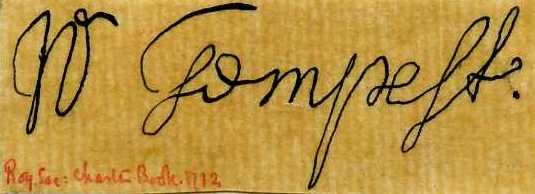 W Tempest.
Roy. Soc: Charter Book. 1712